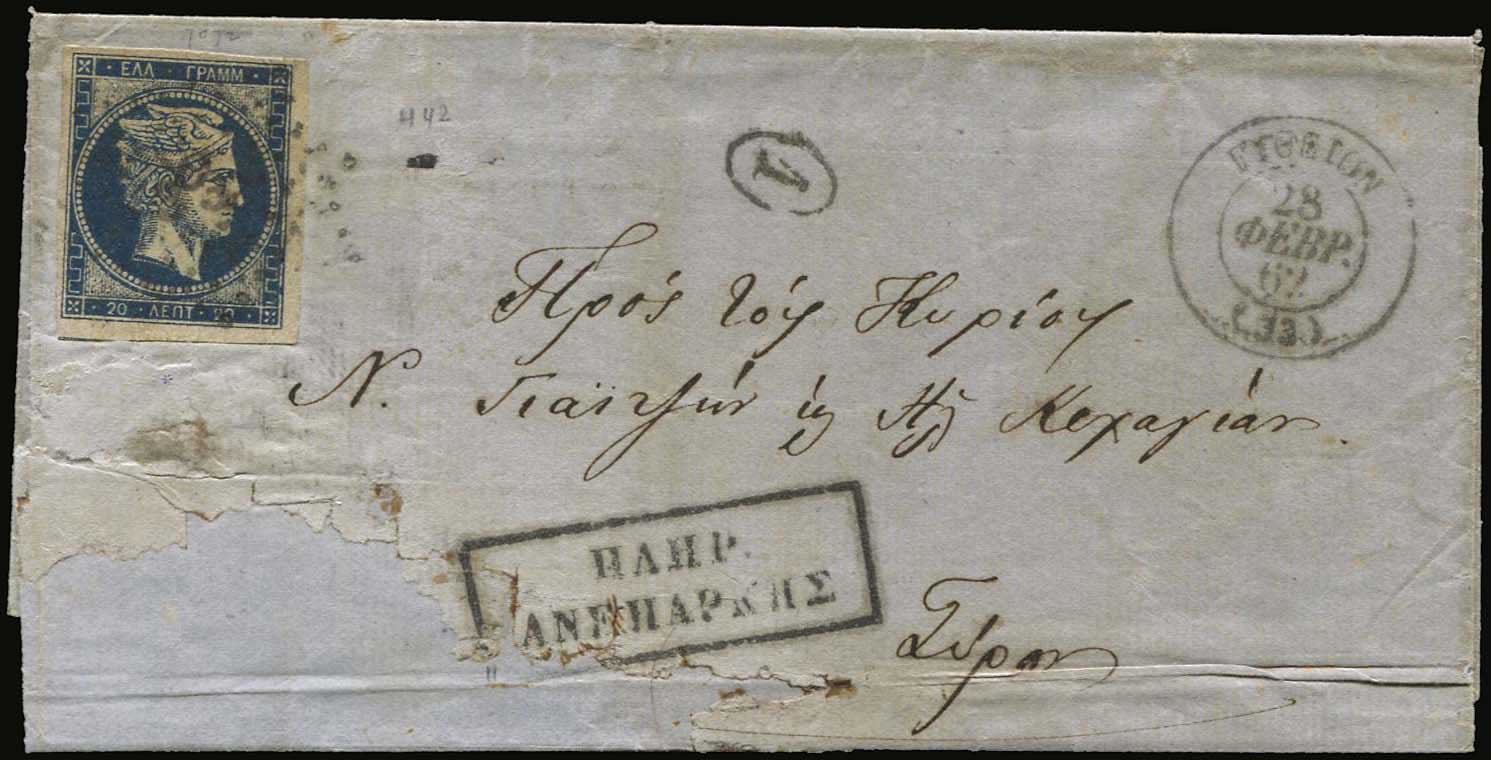 ΕΛΛ · ΓΡΑΜΜ
20 · ΛΕΠΤ · 20
442
1
ΓΥΘΕΙΟΝ
28
ΦΕΒΡ.
62
(33)
Πρὸς τοὺς Κυρίους
Ν.
ΠΛΗΡ.
ΑΝΕΠΑΡΚΗΣ
Σύρον